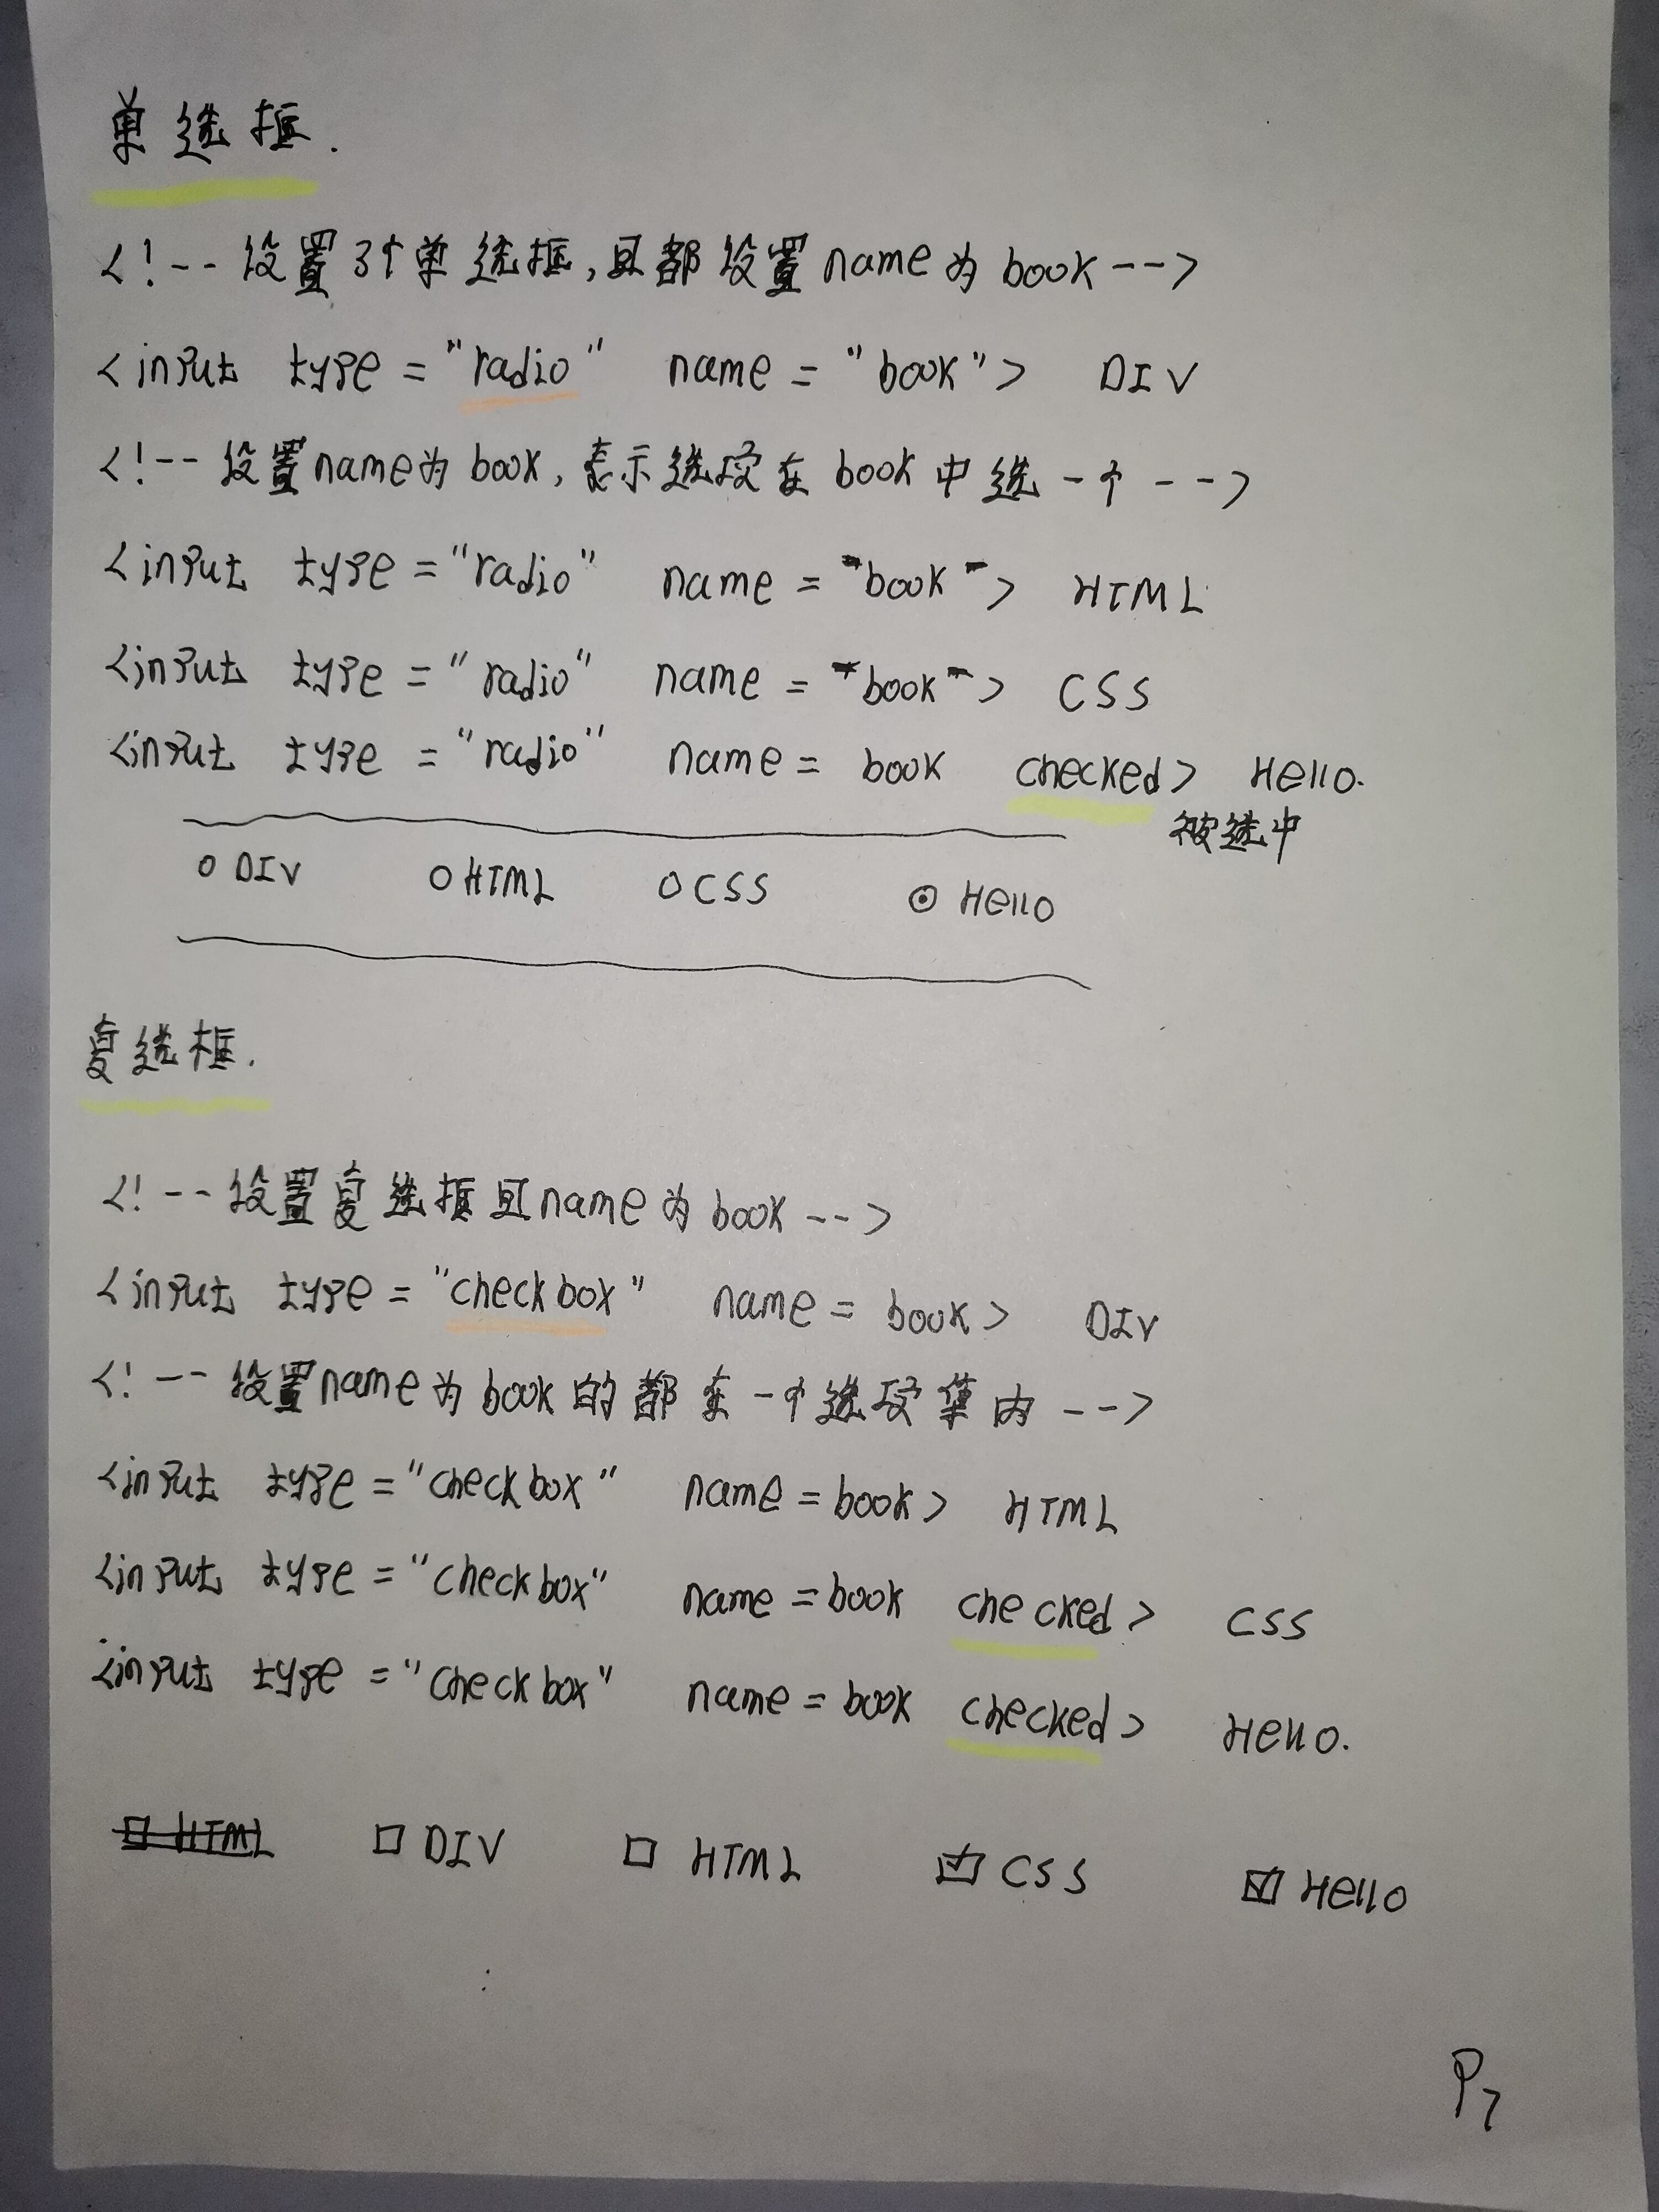 单选框.
<!-- 设置3个单选框,且都设置name为book -->
<input type="radio" name="book"> DIV
<!-- 设置name为book,表示选项在book中选一个 -->
<input type="radio" name="book"> HTML
<input type="radio" name="book"> CSS
<input type="radio" name=book checked> Hello.
被选中
DIV HTML CSS Hello
复选框.
<!-- 设置复选框且name为book -->
<input type="checkbox" name=book> DIV
<!-- 设置name为book的都在一个选项集内 -->
<input type="checkbox" name=book> HTML
<input type="checkbox" name=book checked> CSS
<input type="checkbox" name=book checked> Hello.
□ HTML □ DIV □ HTML ☑ CSS ☑ Hello
P7